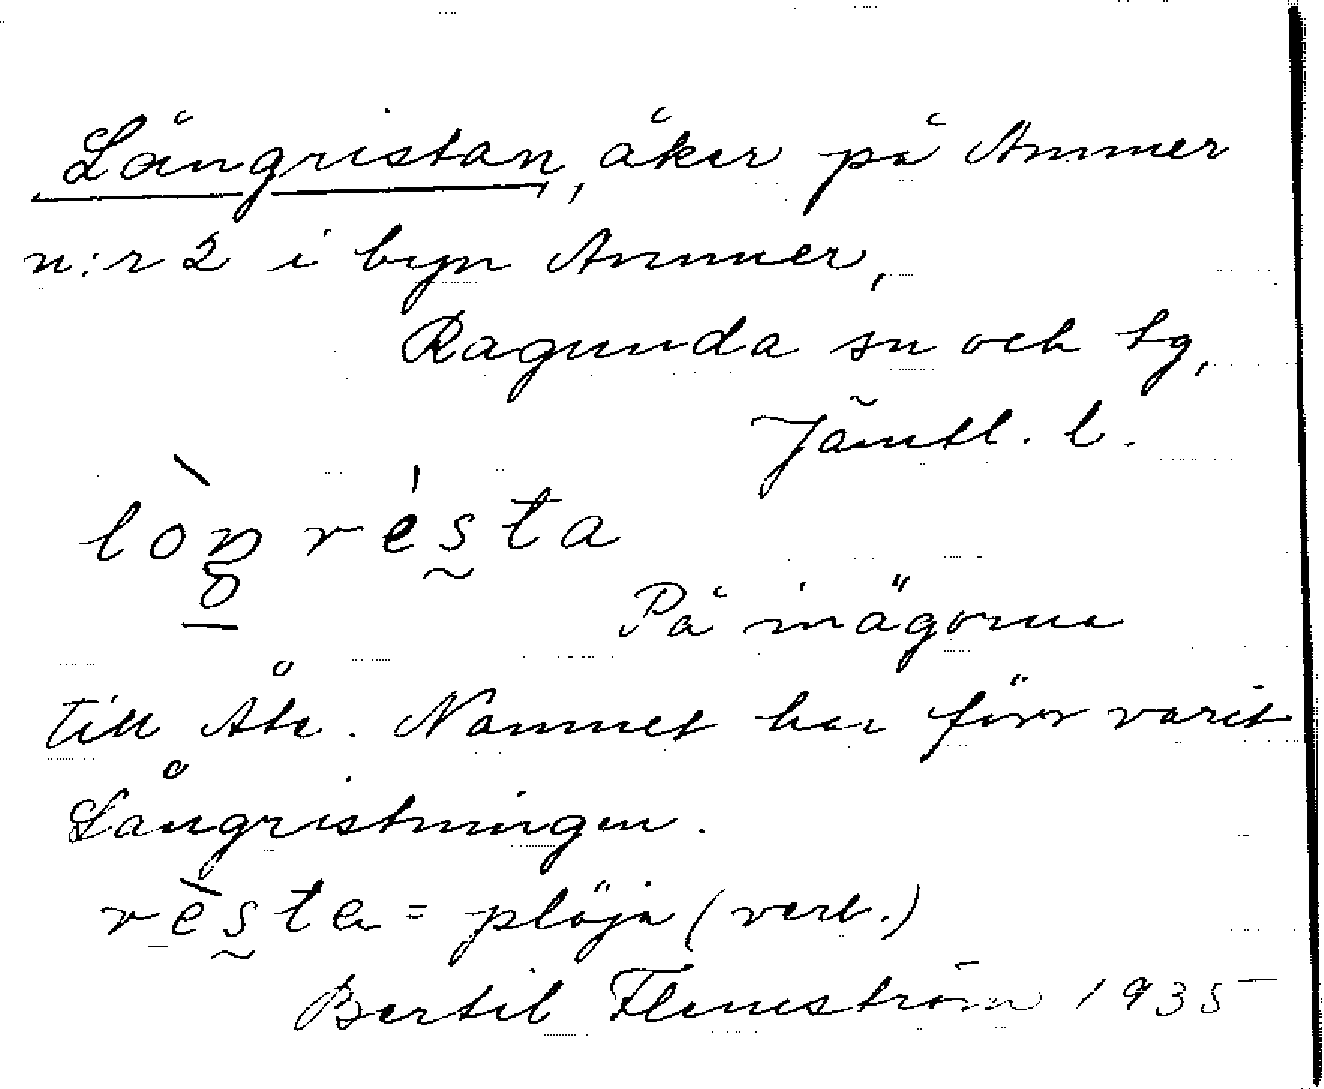 Långristan, åker på Ammer
n:r 2 i byn Ammer,
Ragunda sn och tg,
Jämtl. l.
lòŋ résta
På inägorna
till Åhr. Namnet har förr varit
Långristningen.
rèsta = plöja (verb.)
Bertil Flemström 1935